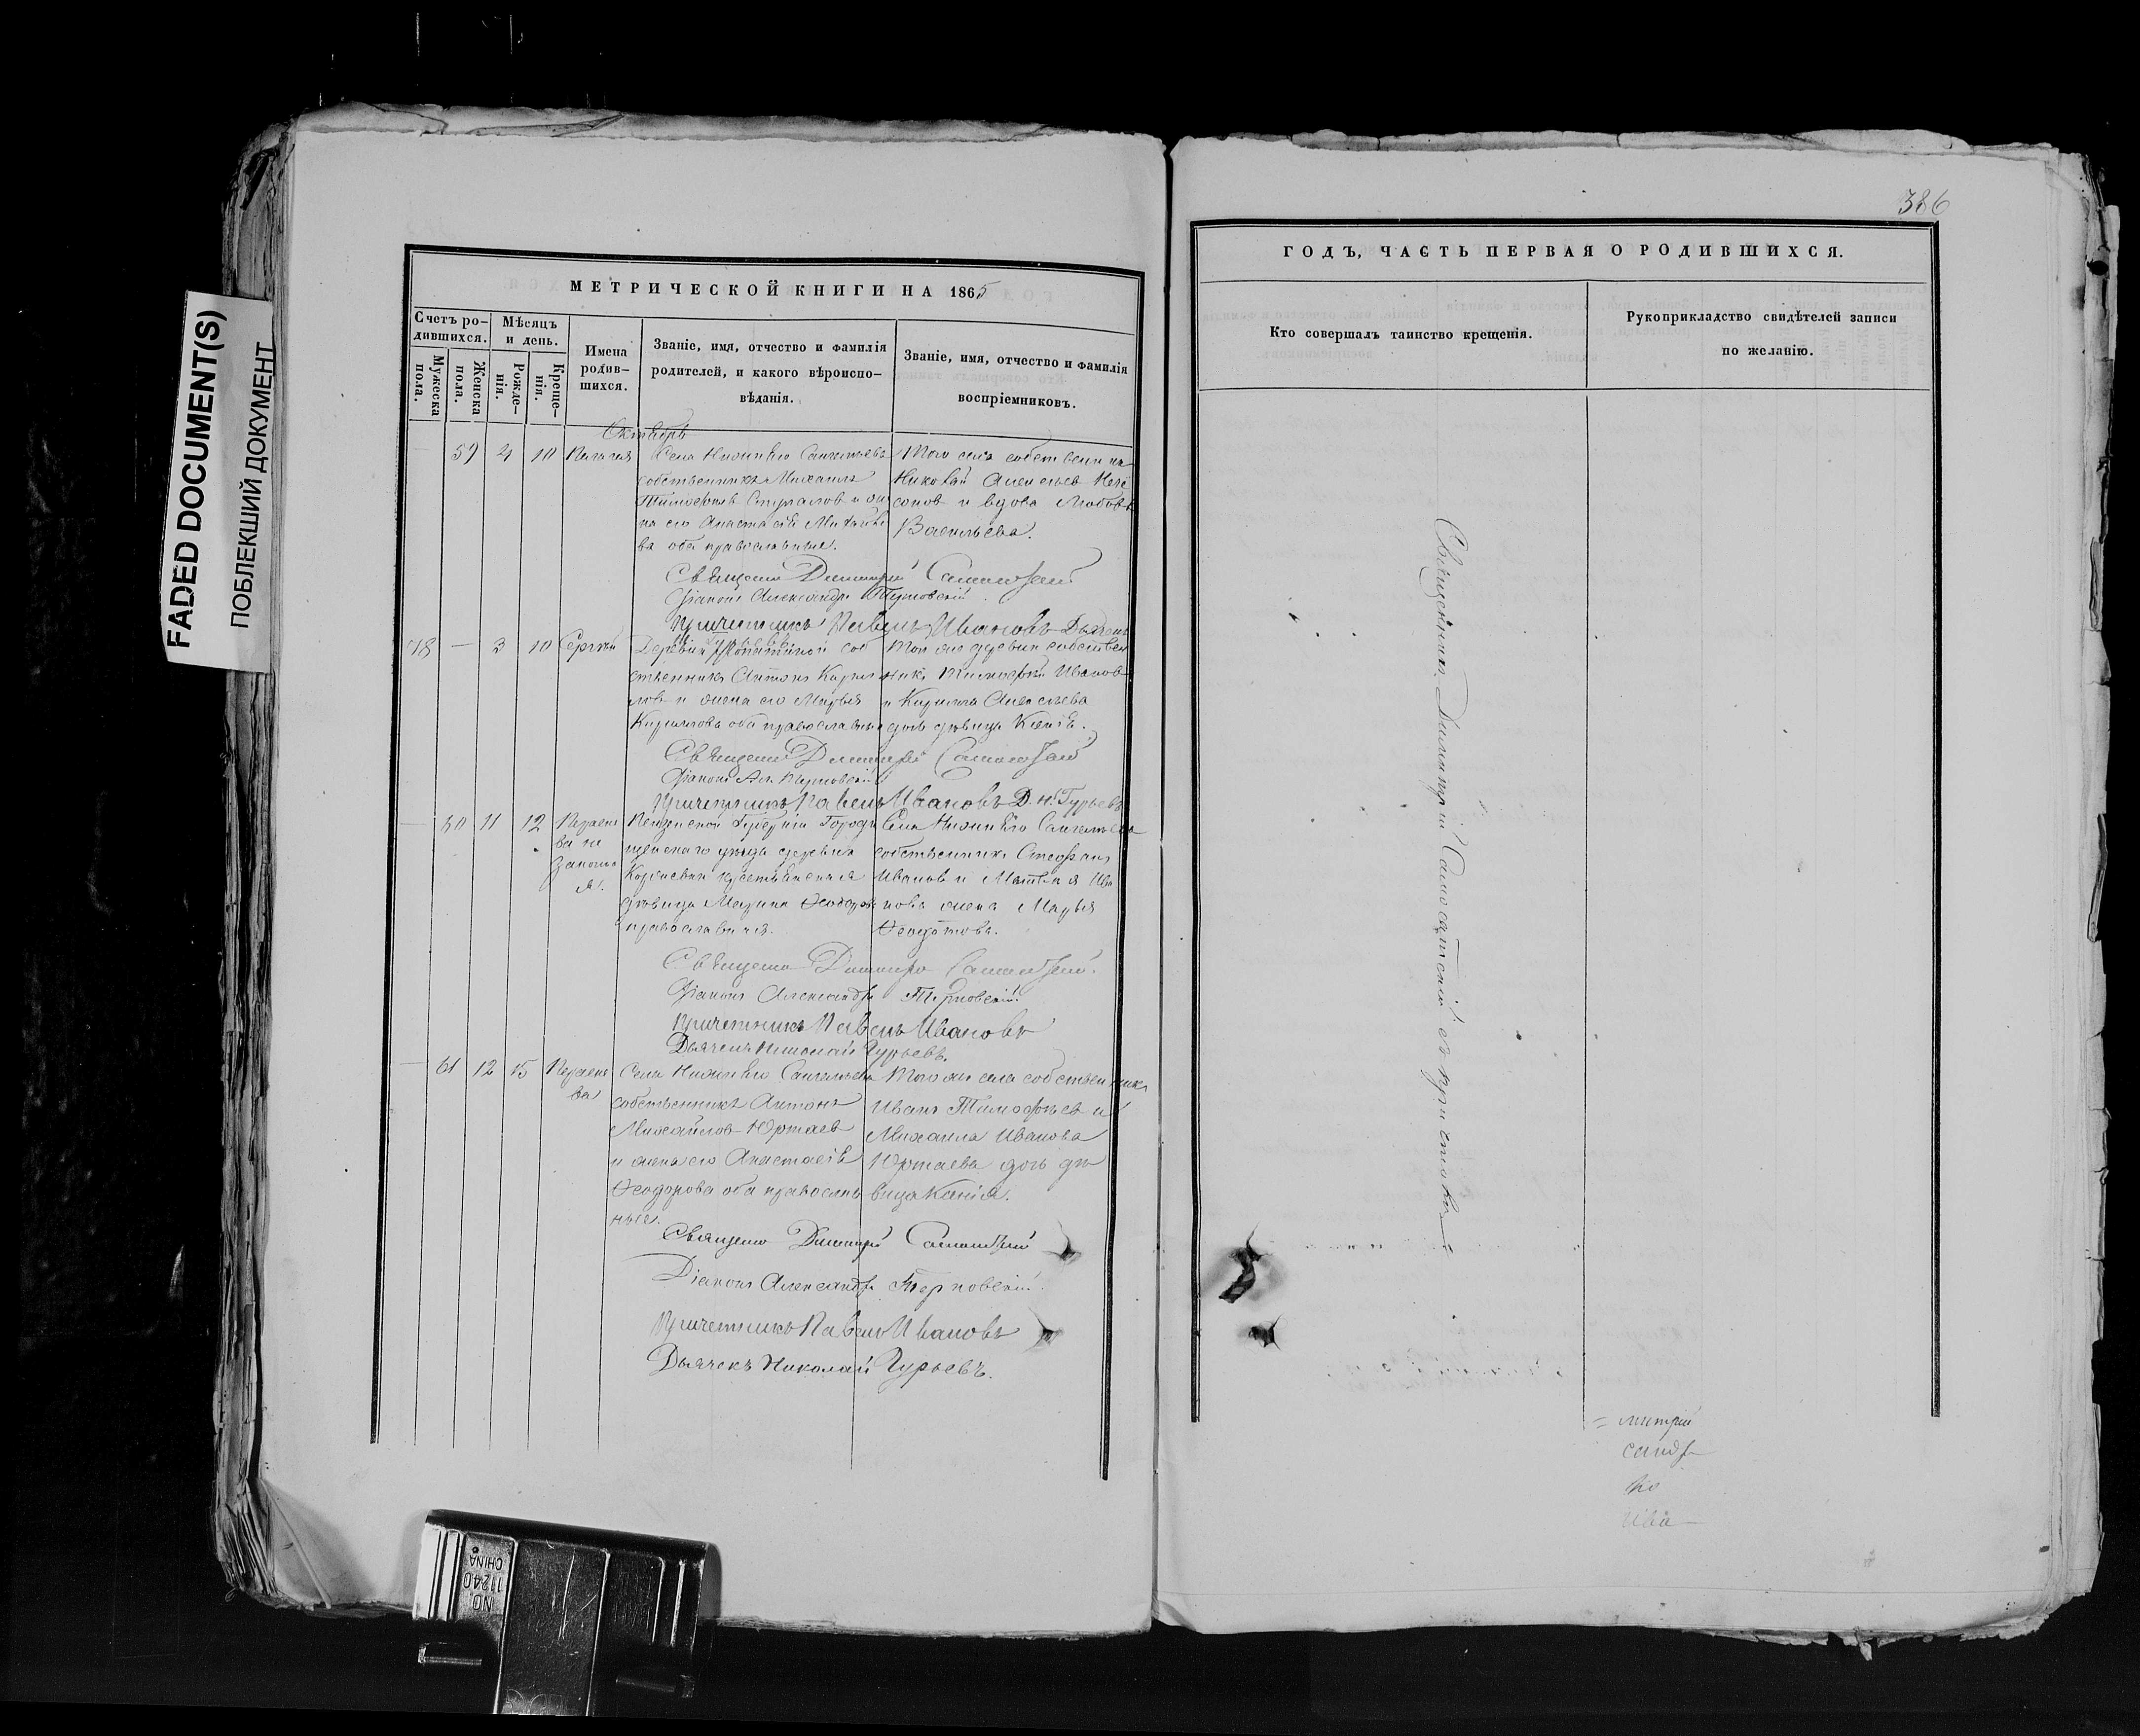 FADED DOCUMENT(S)
ПОБЛЕКШИЙ ДОКУМЕНТ
МЕТРИЧЕСКОЙ КНИГИ НА 1865
Счетъ ро-
дившихся.
Мужеска
пола.
Женска
пола.
Мѣсяцъ
и день.
Рожде-
нія.
Креще-
нія.
Имена
родив-
шихся.
Званіе, имя, отчество и фамилія
родителей, и какого вѣроиспо-
вѣданія.
Званіе, имя, отчество и фамилія
воспріемниковъ.
Октябрь
59 4 10 Пелагея
Села Нижняго
собственникъ Михаилъ
Тимофеевъ и же
на его Анастасія Михайло
ва оба православные.
Того села собственникъ
Николай Алексѣевъ
и вдова Любовь
Васильева.
Священникъ Димитрій
Діаконъ Александръ Терновскій
Причетникъ Павелъ Ивановъ Дьячекъ
Гурьевъ
78 — 3 10 Сергѣй
Деревни соб
ственникъ Антонъ Кирил
ловъ и жена его Марья
Кириллова оба православные
Той же деревни собствен
никъ Тимофей Ивановъ
и Кирилла Алексѣева
дочь дѣвица Ксенія.
Священникъ Димитрій
Діаконъ Ал. Терновскій
Причетникъ Павелъ Ивановъ Д. Н. Гурьевъ
— 60 11 12 Параске
ва не
законна
я.
Пензенской Губерніи Городи
щенскаго уѣзда деревни
крестьянская
дѣвица Марина Ѳеодорова
православная.
Села Нижняго
собственникъ Стефанъ
Ивановъ и Матвѣя Ива
нова жена Марья
Ѳедотова.
Священникъ Димитрій
Діаконъ Александръ Терновскій.
Причетникъ Павелъ Ивановъ
Дьячекъ Николай Гурьевъ.
— 61 12 15 Параске
ва
Села Нижняго
собственникъ Антонъ
Михайловъ Юртаевъ
и жена его Анастасія
Ѳеодорова оба православ
ные.
Того же села собственникъ
Иванъ Тимофѣевъ и
Михаила Иванова
Юртаева дочь дѣ
вица Ксенія.
Священникъ Димитрій
Діаконъ Александръ Терновскій.
Причетникъ Павелъ Ивановъ
Дьячекъ Николай Гурьевъ.
386
ГОДЪ, ЧАСТЬ ПЕРВАЯ О РОДИВШИХСЯ.
Кто совершалъ таинство крещенія.
Рукоприкладство свидѣтелей записи
по желанію.
Священникъ Димитрій съ причтомъ
митрій
сандр
Ива
NO. 11240
CHINA